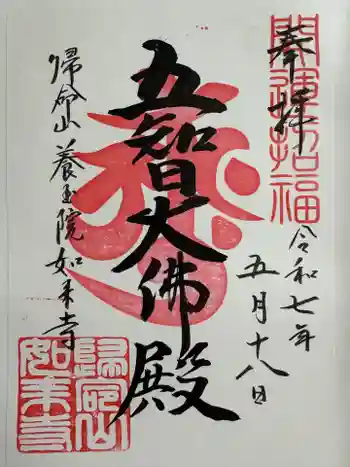 奉拝
開運招福
令和七年
五月十八日
五智大佛殿
帰命山養玉院如来寺
歸命山
如来寺